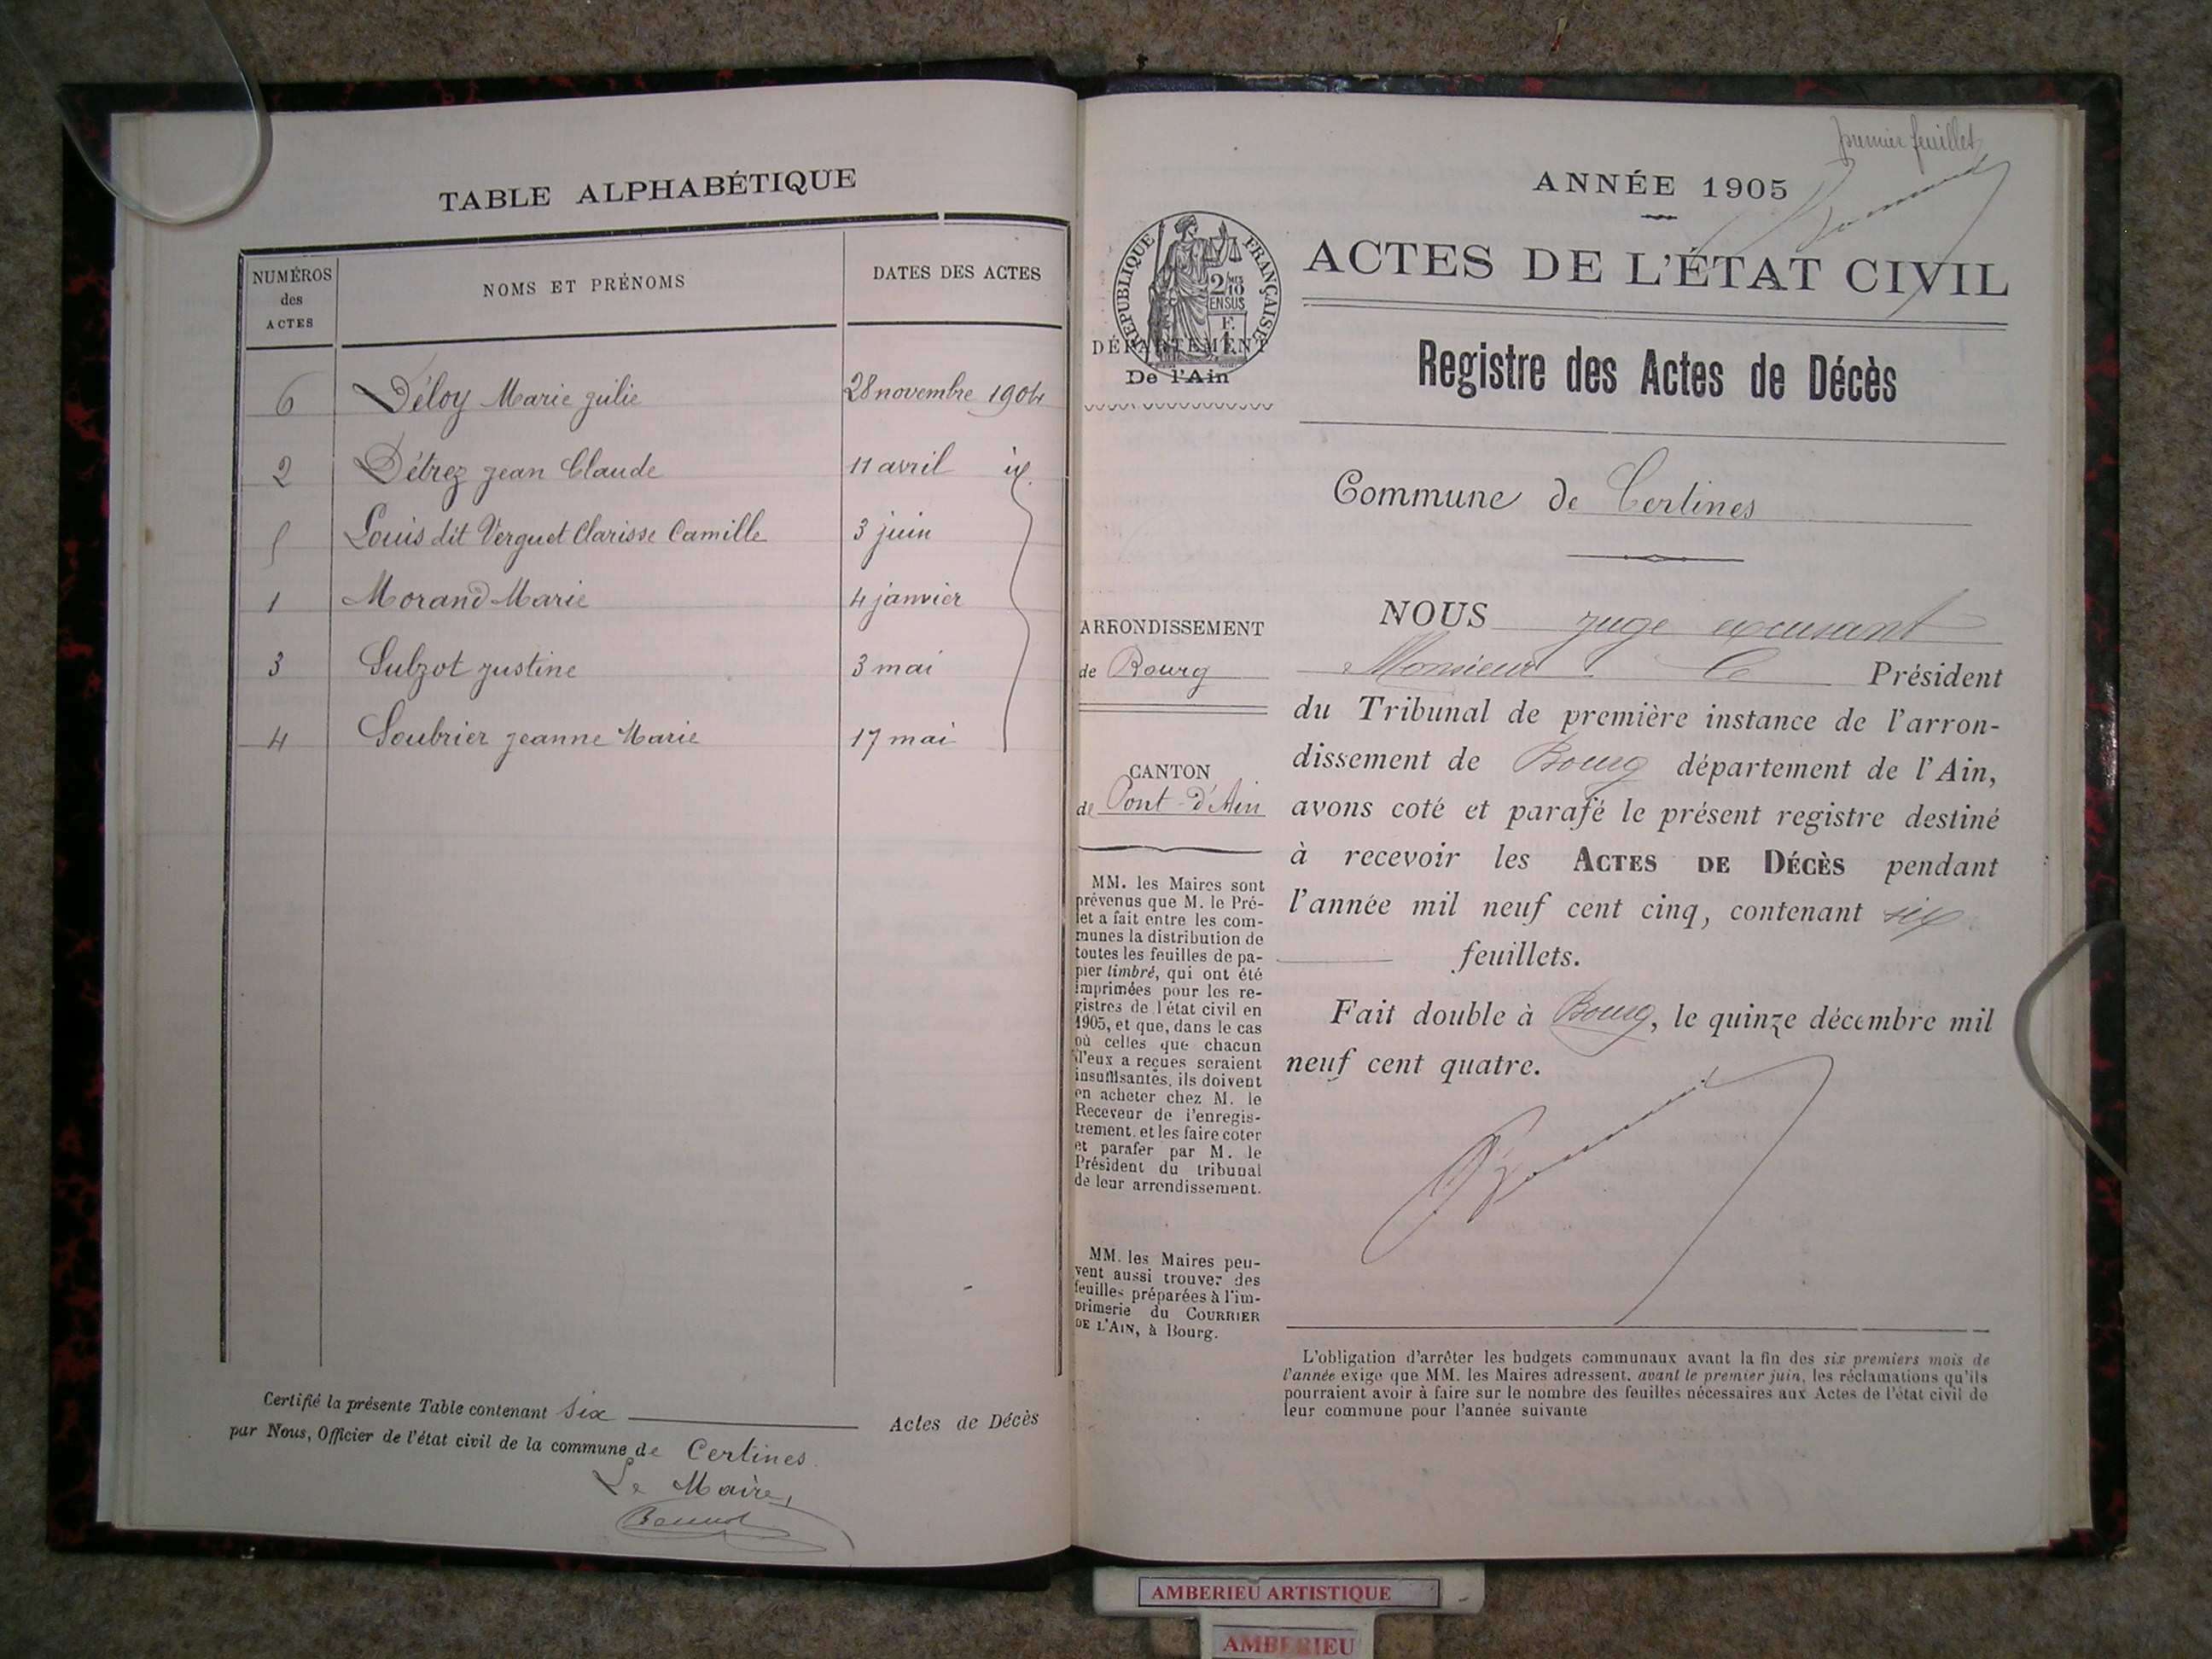 TABLE ALPHABÉTIQUE
NUMÉROS
des
ACTES
NOMS ET PRÉNOMS
DATES DES ACTES
6 Déloy Marie Julie 28 novembre 1904
2 Détrez Jean Claude 11 avril id.
5 Louis dit Verguet Clarisse Camille 3 juin
1 Morand Marie 4 janvier
3 Sulzot Justine 3 mai
4 Soubrier Jeanne Marie 17 mai
Certifié la présente Table contenant Six Actes de Décès
par Nous, Officier de l'état civil de la commune de Certines.
Le Maire,
premier feuillet
ANNÉE 1905
ACTES DE L'ÉTAT CIVIL
RÉPUBLIQUE FRANÇAISE
2/10
EN SUS
F.
1
DÉPARTEMENT
De l'Ain
Registre des Actes de Décès
Commune de Certines
ARRONDISSEMENT
de Bourg
CANTON
de Pont-d'Ain
MM. les Maires sont
prévenus que M. le Pré-
fet a fait entre les com-
munes la distribution de
toutes les feuilles de pa-
pier timbré, qui ont été
imprimées pour les re-
gistres de l'état civil en
1905, et que, dans le cas
où celles que chacun
d'eux a reçues seraient
insuffisantes, ils doivent
en acheter chez M. le
Receveur de l'enregis-
trement, et les faire coter
et parafer par M. le
Président du tribunal
de leur arrondissement.
MM. les Maires peu-
vent aussi trouver des
feuilles préparées à l'im-
primerie du COURRIER
DE L'AIN, à Bourg.
NOUS juge excusant
Monsieur le Président
du Tribunal de première instance de l'arron-
dissement de Bourg département de l'Ain,
avons coté et parafé le présent registre destiné
à recevoir les ACTES DE DÉCÈS pendant
l'année mil neuf cent cinq, contenant six
feuillets.
Fait double à Bourg, le quinze décembre mil
neuf cent quatre.
L'obligation d'arrêter les budgets communaux avant la fin des six premiers mois de
l'année exige que MM. les Maires adressent, avant le premier juin, les réclamations qu'ils
pourraient avoir à faire sur le nombre des feuilles nécessaires aux Actes de l'état civil de
leur commune pour l'année suivante
AMBERIEU ARTISTIQUE
AMBERIEU